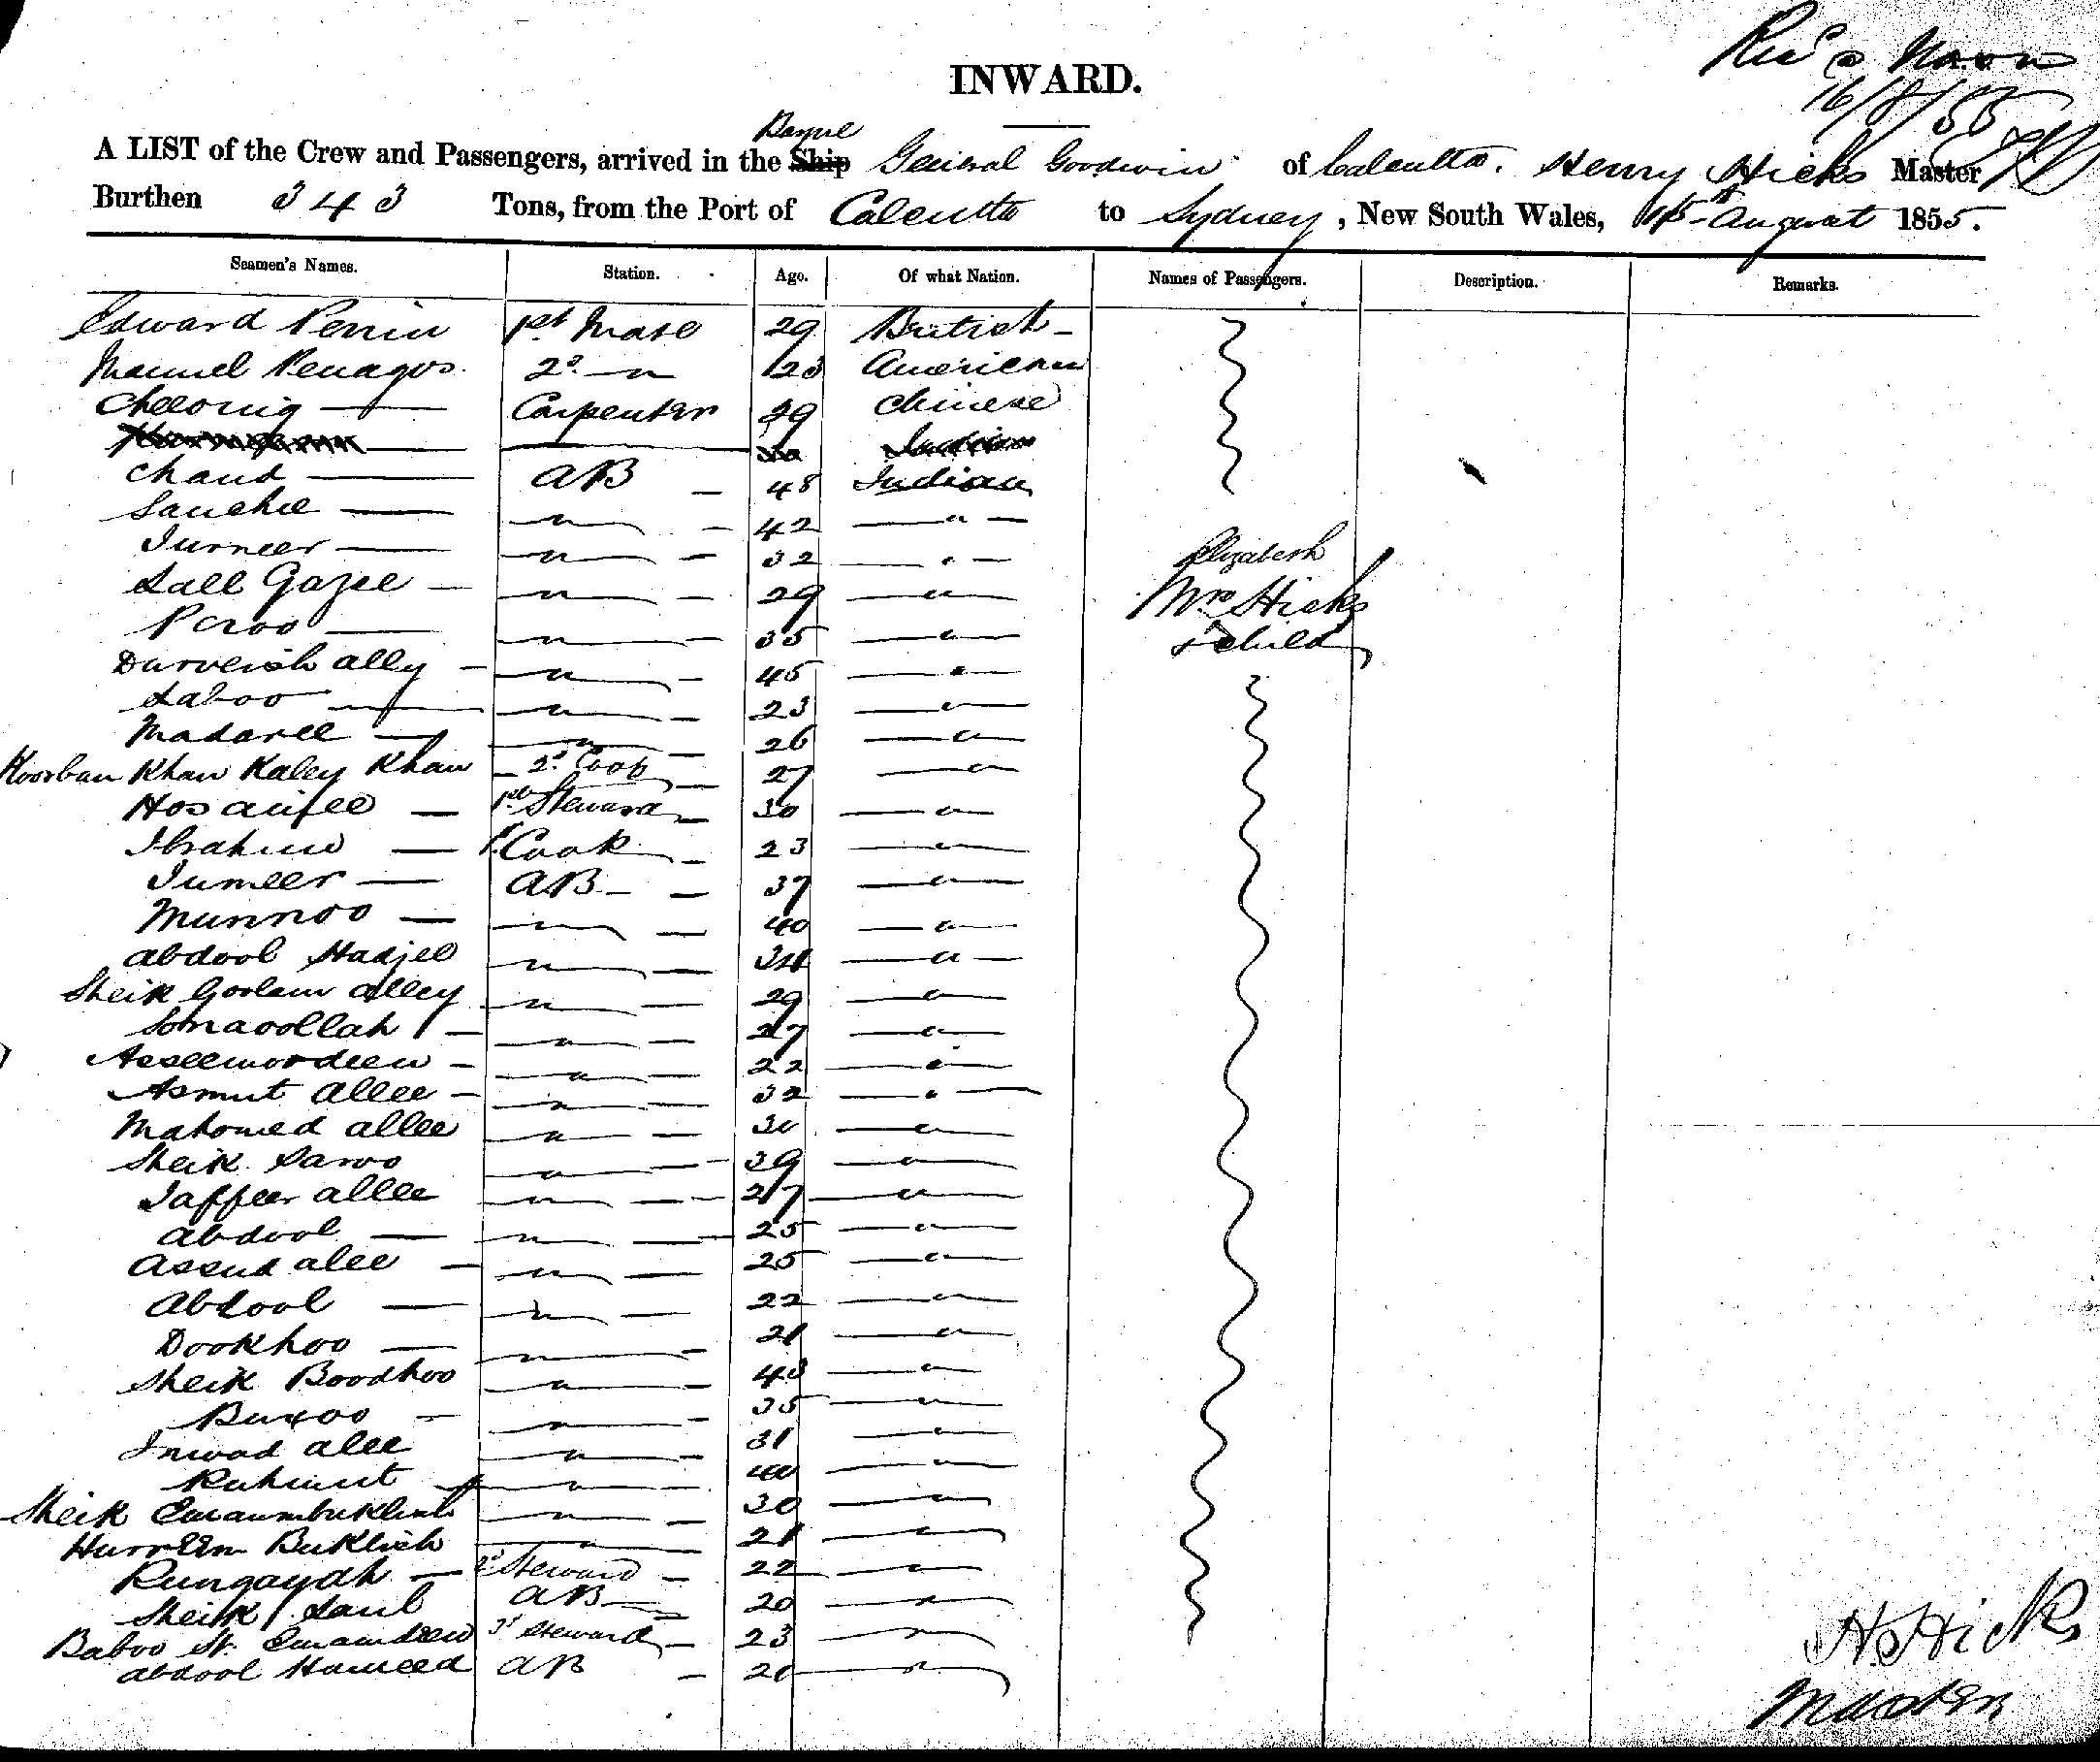 Rec'd @ Noon
16/8/55
INWARD.
Barque
A LIST of the Crew and Passengers, arrived in the Ship General Goodwin of Calcutta. Henry Hicks Master
Burthen 343 Tons, from the Port of Calcutta to Sydney, New South Wales, 15th August 1855.
Seamen's Names. Station. Age. Of what Nation. Names of Passengers. Description. Remarks.
Edward Perrin 1st Mate 29 British
Manuel Penagos 2d " 23 American
Cheeonig Carpenter 29 Chinese
Indian
Chand AB 48 Indian
Sauchee " 42 "
Jurneer " 32 " Elizabeth
Lall Gazee " 29 " Mrs Hicks
Peroo " 35 " & Child
Durveish ally " 45 "
Laboo " 23 "
Madaree " 26 "
Koorban Khan Kaley Khan 2d Cook 27 "
Hosainee 1st Steward 30 "
Ibrahim 1st Cook 23 "
Jumeer AB 37 "
Munnoo " 40 "
Abdool Hadjee " "
Sheik Goolam Alley " 29 "
Somaoollah " 27 "
Asseemoordeen " 22 "
Asmut Allee " 32 "
Mahomed allee " 30 "
Sheik Saroo " 39 "
Jaffeer allee " 27 "
Abdool " 25 "
Assud alee " 25 "
Abdool " 22 "
Dookhoo " 21 "
Sheik Boodhoo " 43 "
Buxoo " 35 "
Inwad alee " 31 "
Ruhmut " 40 "
Sheik Emaumbuklish " 30 "
Hurreem Buklish " 21 "
Rungayah 2d Steward 22 "
Sheik Saul AB 20 "
Baboo St. Emamdeen 3d Steward 23 "
Abdool Hameed AB 20 "
H Hicks
Master